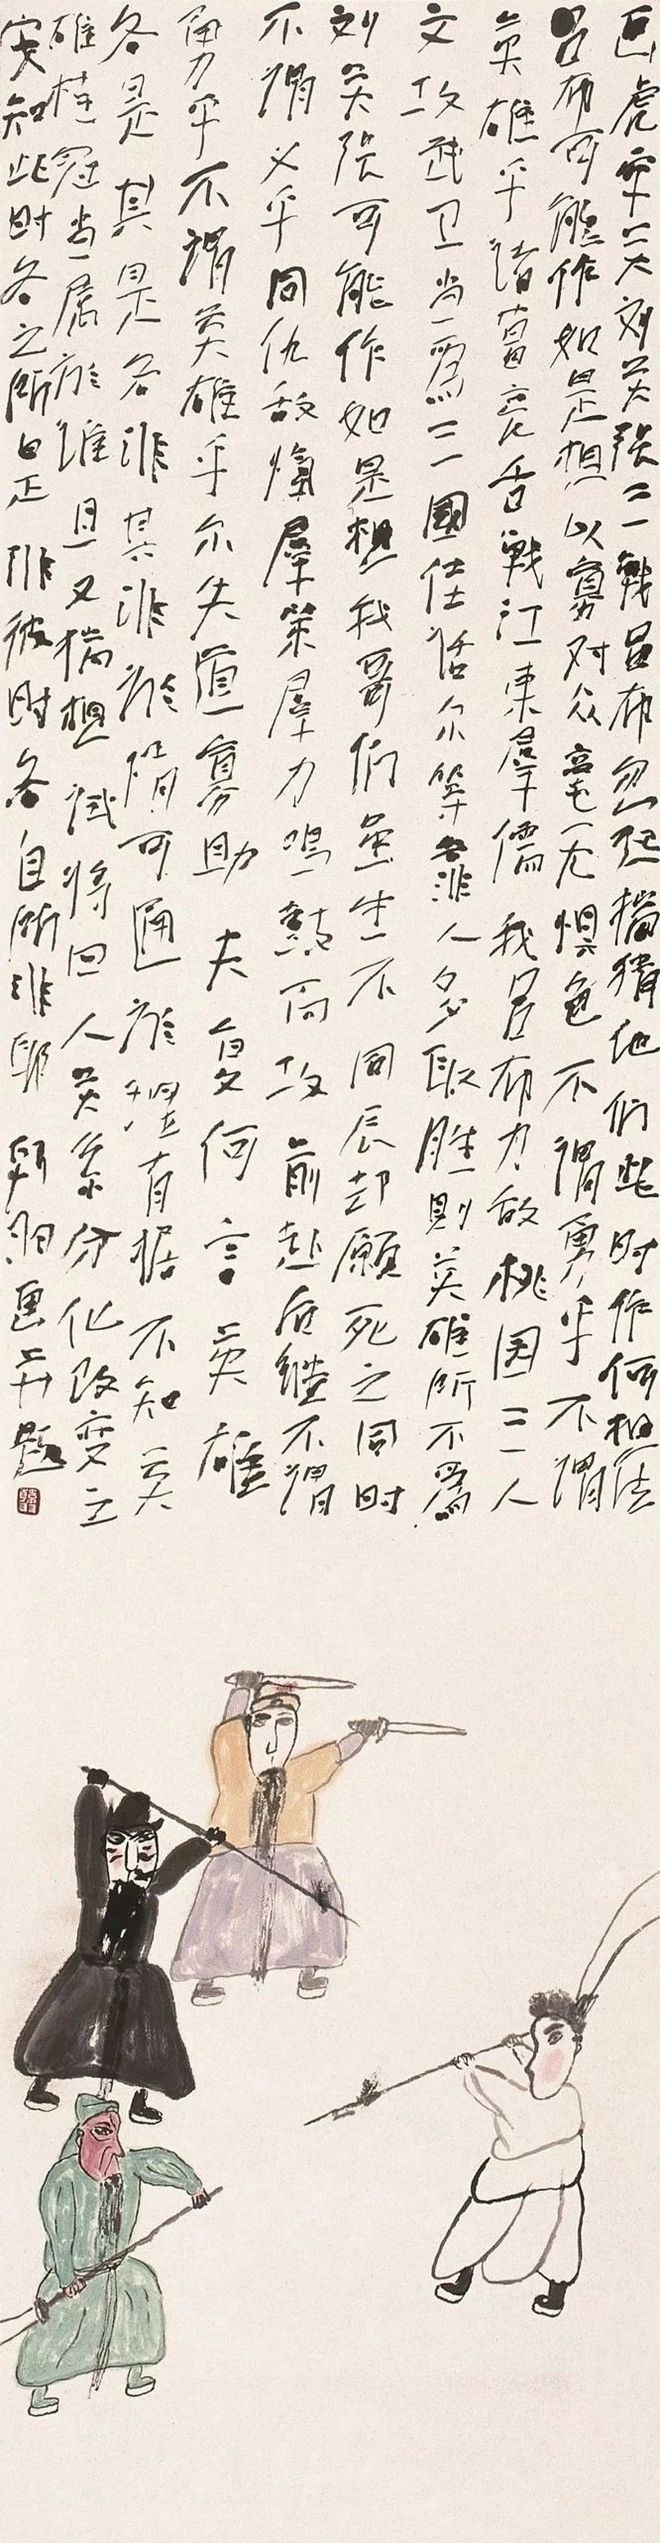 画虎牢关刘关张三戰吕布忽起揣猜他们此时作何想法
吕布可能作如是想以寡对众毫无惧色不謂勇乎不謂
英雄乎诸葛亮舌戰江東羣儒我吕布力敌桃园三人
文攻武卫当為三國佳话尔等若非人多取胜则英雄所不為
刘关张可能作如是想我哥们虽生不同辰却願死之同时
不謂义乎同仇敌愾羣策羣力鸣鼓而攻前赴后继不謂
勇乎不謂英雄乎尔失道寡助夫复何言英雄
各是其是各非其非於情可通於理有据不知英
雄桂冠当属於谁且又揣想诚将四人关系分化改变之
安知此时各之所是非彼时各自所非耶 韩羽画并题